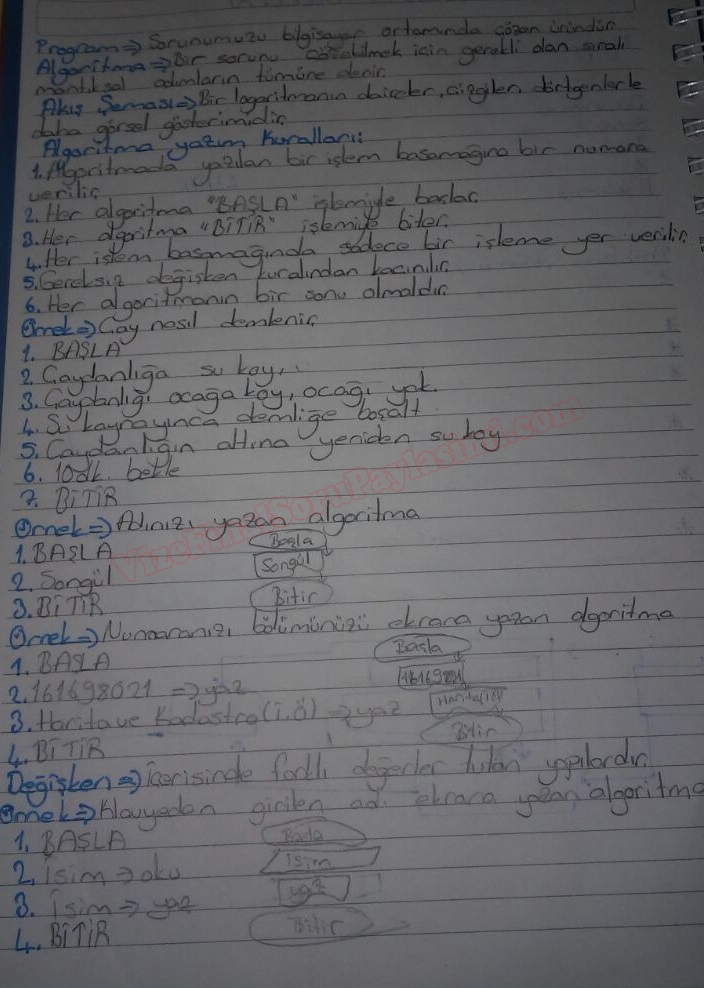 Program⇒ Sorunumuzu bilgisayar ortamında çözen üründür.
Algoritma⇒ Bir sorunu çözebilmek için gerekli olan sıralı
mantıksal adımların tümüne denir.
Akış Şeması⇒ Bir logaritmanın daireler, çizgiler, dörtgenlerle
daha görsel gösterimidir.
Algoritma yazım kuralları:
1. Algoritmada yazılan bir işlem basamağına bir numara
verilir.
2. Her algoritma "BAŞLA" işlemiyle başlar.
3. Her algoritma "BİTİR" işlemiyle biter.
4. Her işlem basamağında sadece bir işleme yer verilir.
5. Gereksiz değişken kuralından kaçınılır.
6. Her algoritmanın bir sonu olmaldır.
Örnek⇒ Çay nasıl demlenir.
1. BAŞLA
2. Çaydanlığa su koy.
3. Çaydanlığı ocağa koy, ocağı yak.
4. Su kaynayınca demliğe boşalt.
5. Çaydanlığın altına yeniden su koy
6. 10dk. bekle
7. BİTİR
VizeKurdSoruPaylasimi.com
Örnek⇒ Adınızı yazan algoritma
1. BAŞLA Başla
2. Songül Songül
3. BİTİR Bitir
Örnek⇒ Numaranızı, bölümünüzü ekrana yazan algoritma
1. BAŞLA Başla
2. 161698021 ⇒ yaz 16169821
3. Harita ve Kadastro (İ.Ö) ⇒ yaz Harita(İÖ)
4. BİTİR Bitir
Değişken⇒ İçerisinde farklı değerler tutan yapılardır.
Örnek⇒ Klavyeden girilen adı ekrana yazan algoritma
1. BAŞLA Başla
2. İsim ⇒ oku İsim
3. İsim ⇒ yaz yaz
4. BİTİR Bitir